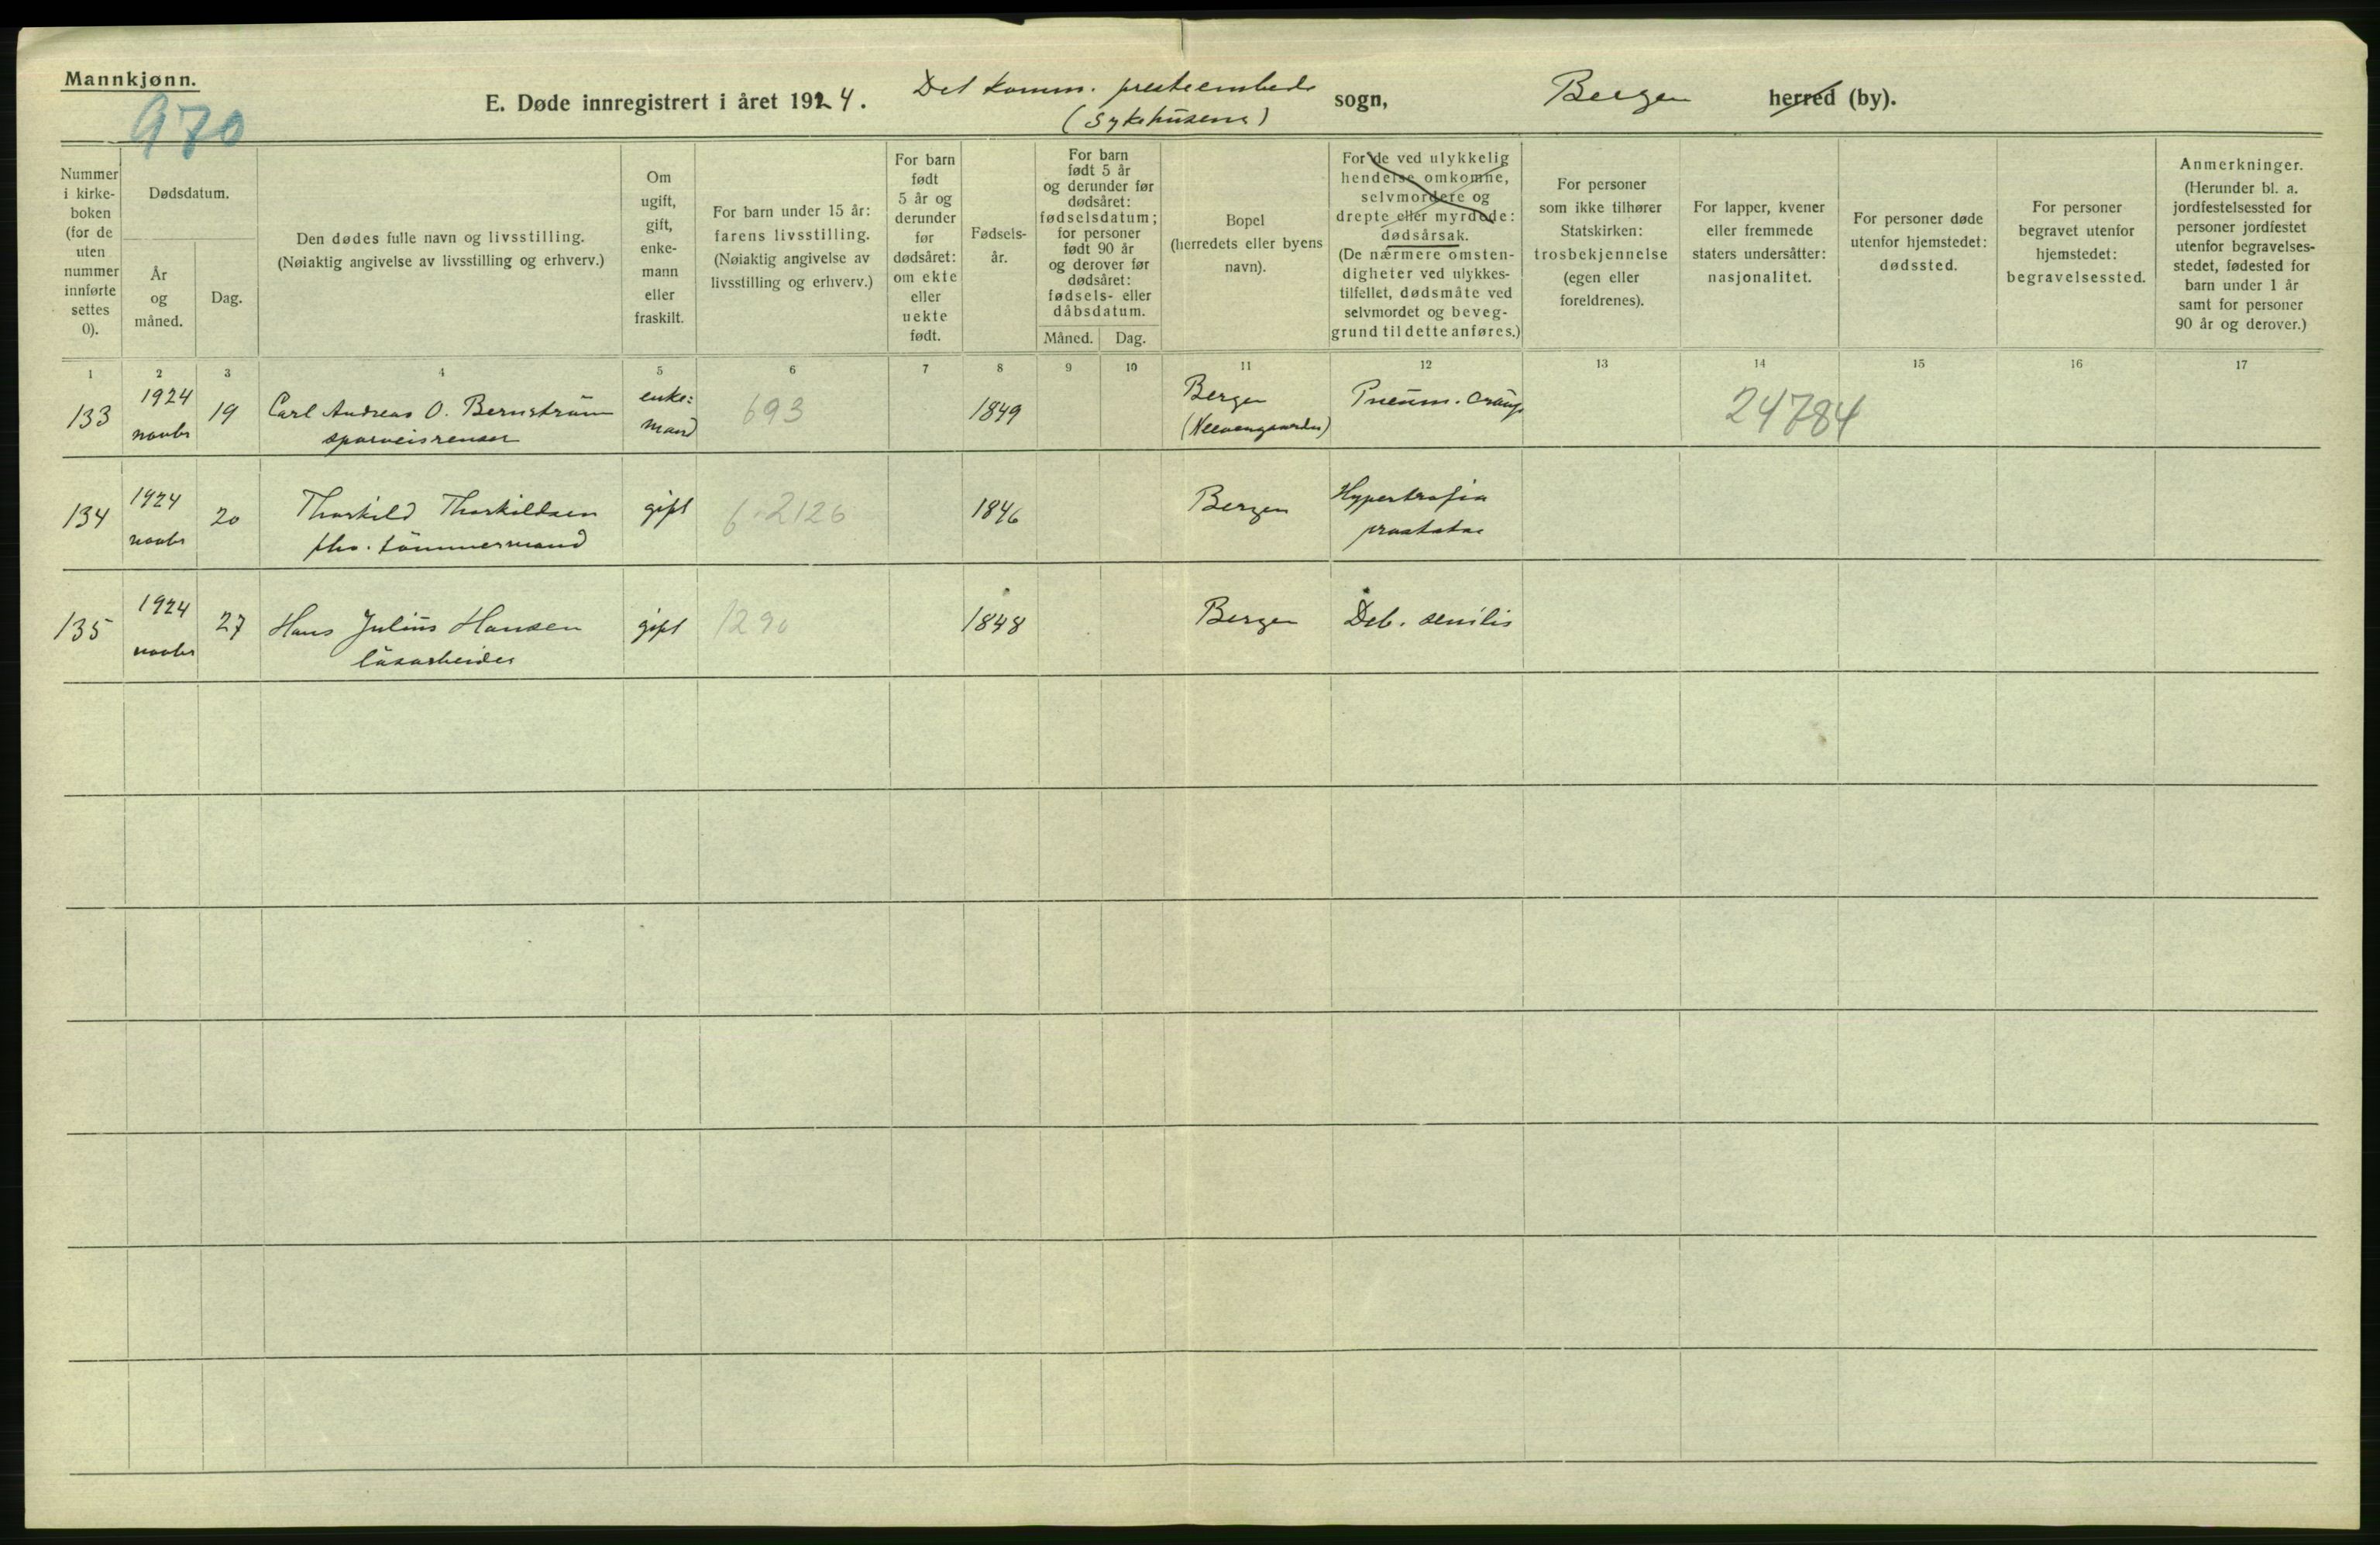 Mannkjønn.
970
E. Døde innregistrert i året 1924. Det komm. presteembede sogn, Bergen herred (by).
(Sykehusene)
Nummer
i kirke-
boken
(for de
uten
nummer
innførte
settes
0).
Dødsdatum.
År
og
måned.
Dag.
Den dødes fulle navn og livsstilling.
(Nøiaktig angivelse av livsstilling og erhverv.)
Om
ugift,
gift,
enke-
mann
eller
fraskilt.
For barn under 15 år:
farens livsstilling.
(Nøiaktig angivelse av
livsstilling og erhverv.)
For barn
født
5 år og
derunder
før
dødsåret:
om ekte
eller
uekte
født.
Fødsels-
år.
For barn
født 5 år
og derunder før
dødsåret:
fødselsdatum;
for personer
født 90 år
og derover før
dødsåret:
fødsels- eller
dåbsdatum.
Måned. Dag.
Bopel
(herredets eller byens
navn).
For de ved ulykkelig
hendelse omkomne,
selvmordere og
drepte eller myrdede:
dødsårsak.
(De nærmere omsten-
digheter ved ulykkes-
tilfellet, dødsmåte ved
selvmordet og beveg-
grund til dette anføres.)
For personer
som ikke tilhører
Statskirken:
trosbekjennelse
(egen eller
foreldrenes).
For lapper, kvener
eller fremmede
staters undersåtter:
nasjonalitet.
For personer døde
utenfor hjemstedet:
dødssted.
For personer
begravet utenfor
hjemstedet:
begravelsessted.
Anmerkninger.
(Herunder bl. a.
jordfestelsessted for
personer jordfestet
utenfor begravelses-
stedet, fødested for
barn under 1 år
samt for personer
90 år og derover.)
1 2 3 4 5 6 7 8 9 10 11 12 13 14 15 16 17
133 1924 19 Carl Andreas O. Bernström enke: 693 1849 Bergen Pneum. croup 24784
novbr sporveisrenser mand (Neevengaarden)
134 1924 20 Thorkild Thorkildsen gift 6.2126 1846 Bergen Hypertrofia
novbr fhv. tömmermand prostatae
135 1924 27 Hans Julius Hansen gift 1290 1848 Bergen Deb. senilis
novbr løsarbeider